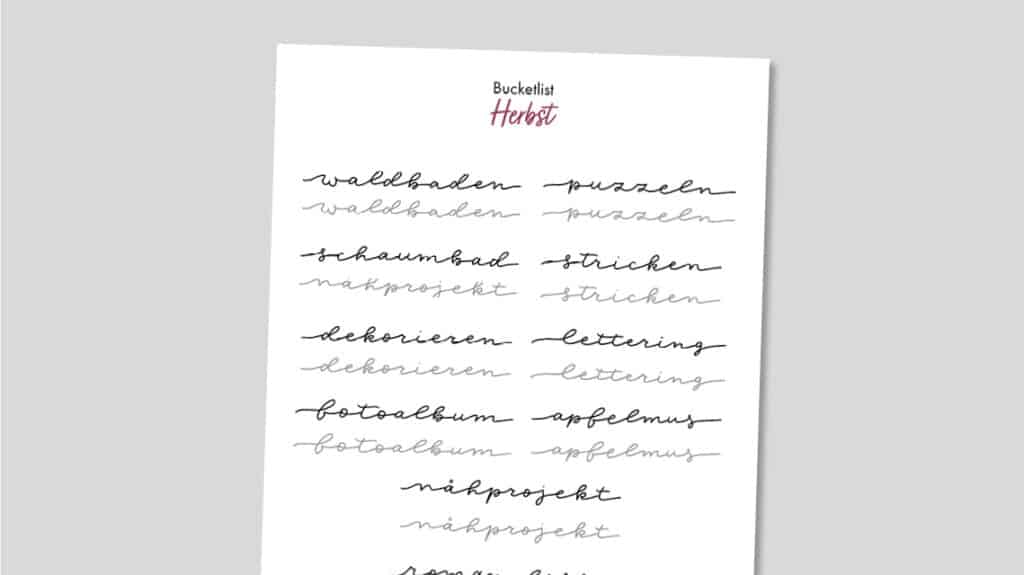 Bucketlist
Herbst
waldbaden puzzeln
waldbaden puzzeln
schaumbad stricken
nähprojekt stricken
dekorieren lettering
dekorieren lettering
fotoalbum apfelmus
fotoalbum apfelmus
nähprojekt
nähprojekt